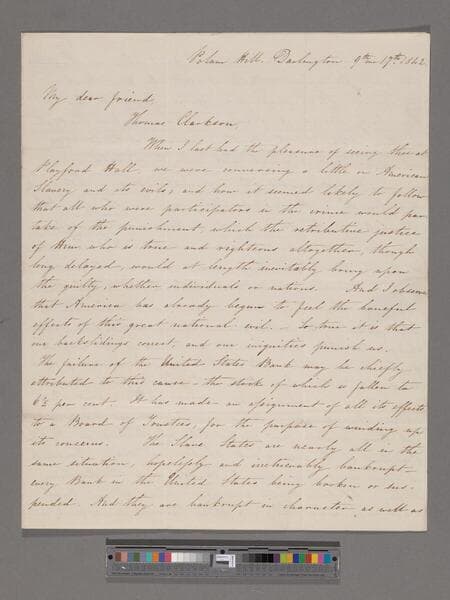 Polam Hill. Darlington 9th m 17th 1842
My dear friend
Thomas Clarkson,
When I last had the pleasure of seeing thee at
Playford Hall, we were conversing a little on American
Slavery and its evils; and how it seemed likely to follow
that all who were participators in the crime would par
take of the punishment, which the retributive justice
of Him, who is true and righteous altogether, though
long delayed, would at length inevitably bring upon
the guilty, whether individuals or nations. And I observe
that America has already begun to feel the baneful
effects of this great national evil. – So true it is that
our backslidings correct, and our iniquities punish us.
The failure of the United States Bank may be chiefly
attributed to this cause – the stock of which is fallen to
6½ per cent – It has made an assignment of all its effects
to a Board of Trustees, for the purpose of winding up
its concerns. The Slave States are nearly all in the
same situation, hopelessly and irretrievably bankrupt –
every Bank in the United States being broken or sus-
pended. And they are bankrupt in character as well as